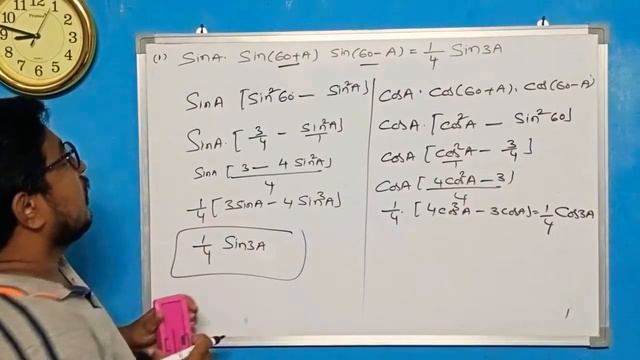 (1) SinA. Sin(60+A) Sin(60-A) = 1/4 Sin3A
SinA [Sin²60 - Sin²A]
SinA. [3/4 - Sin²A/1]
SinA [3 - 4 Sin²A]/4
1/4 [3SinA - 4 Sin³A]
1/4 Sin3A
CosA. Cos(60+A). Cos(60-A)
CosA. [Cos²A - Sin²60]
CosA [Cos²A/1 - 3/4]
CosA [4Cos²A - 3]/4
1/4. [4Cos³A - 3CosA] = 1/4 Cos3A